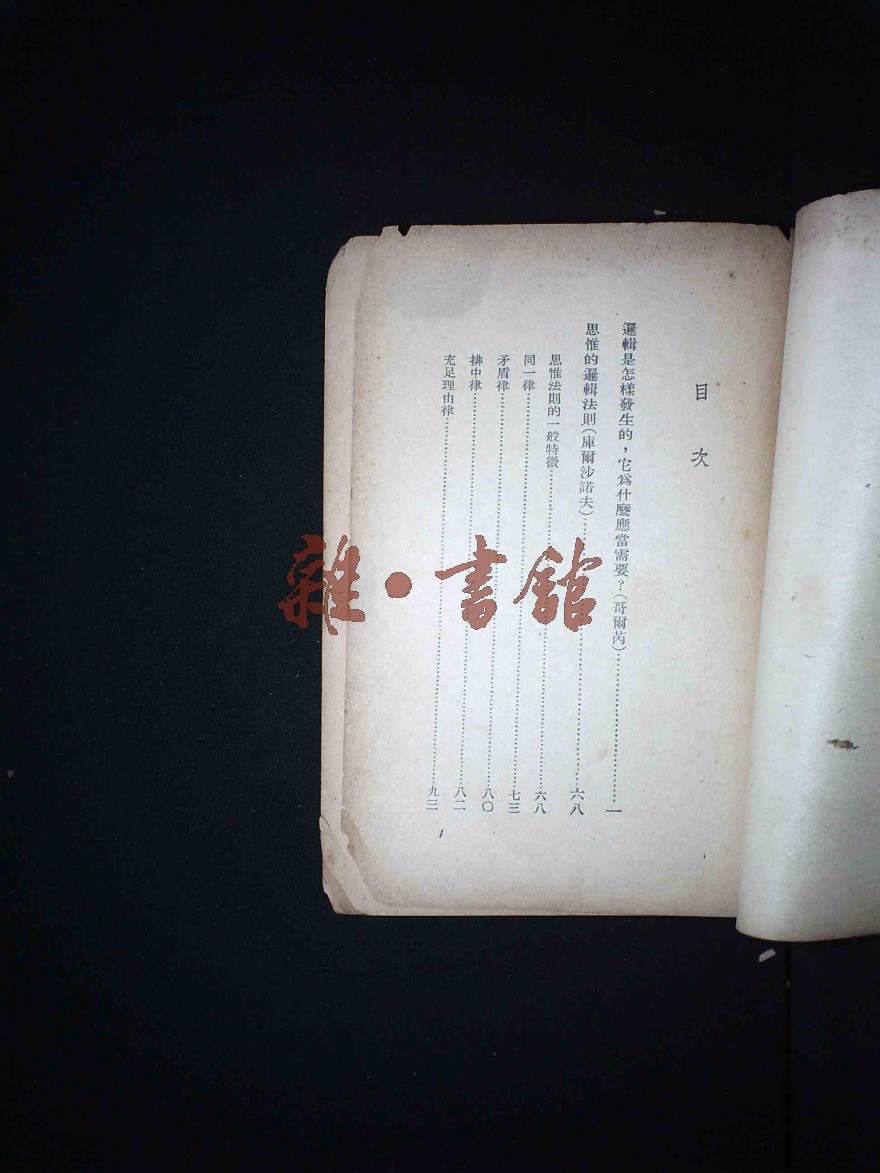 目次
邏輯是怎樣發生的，它爲什麼應當需要？（哥爾芮）……一
思惟的邏輯法則（庫爾沙諾夫）……六八
思惟法則的一般特徵……六八
同一律……七三
矛盾律……八〇
排中律……八二
充足理由律……九三
1
雜·書館